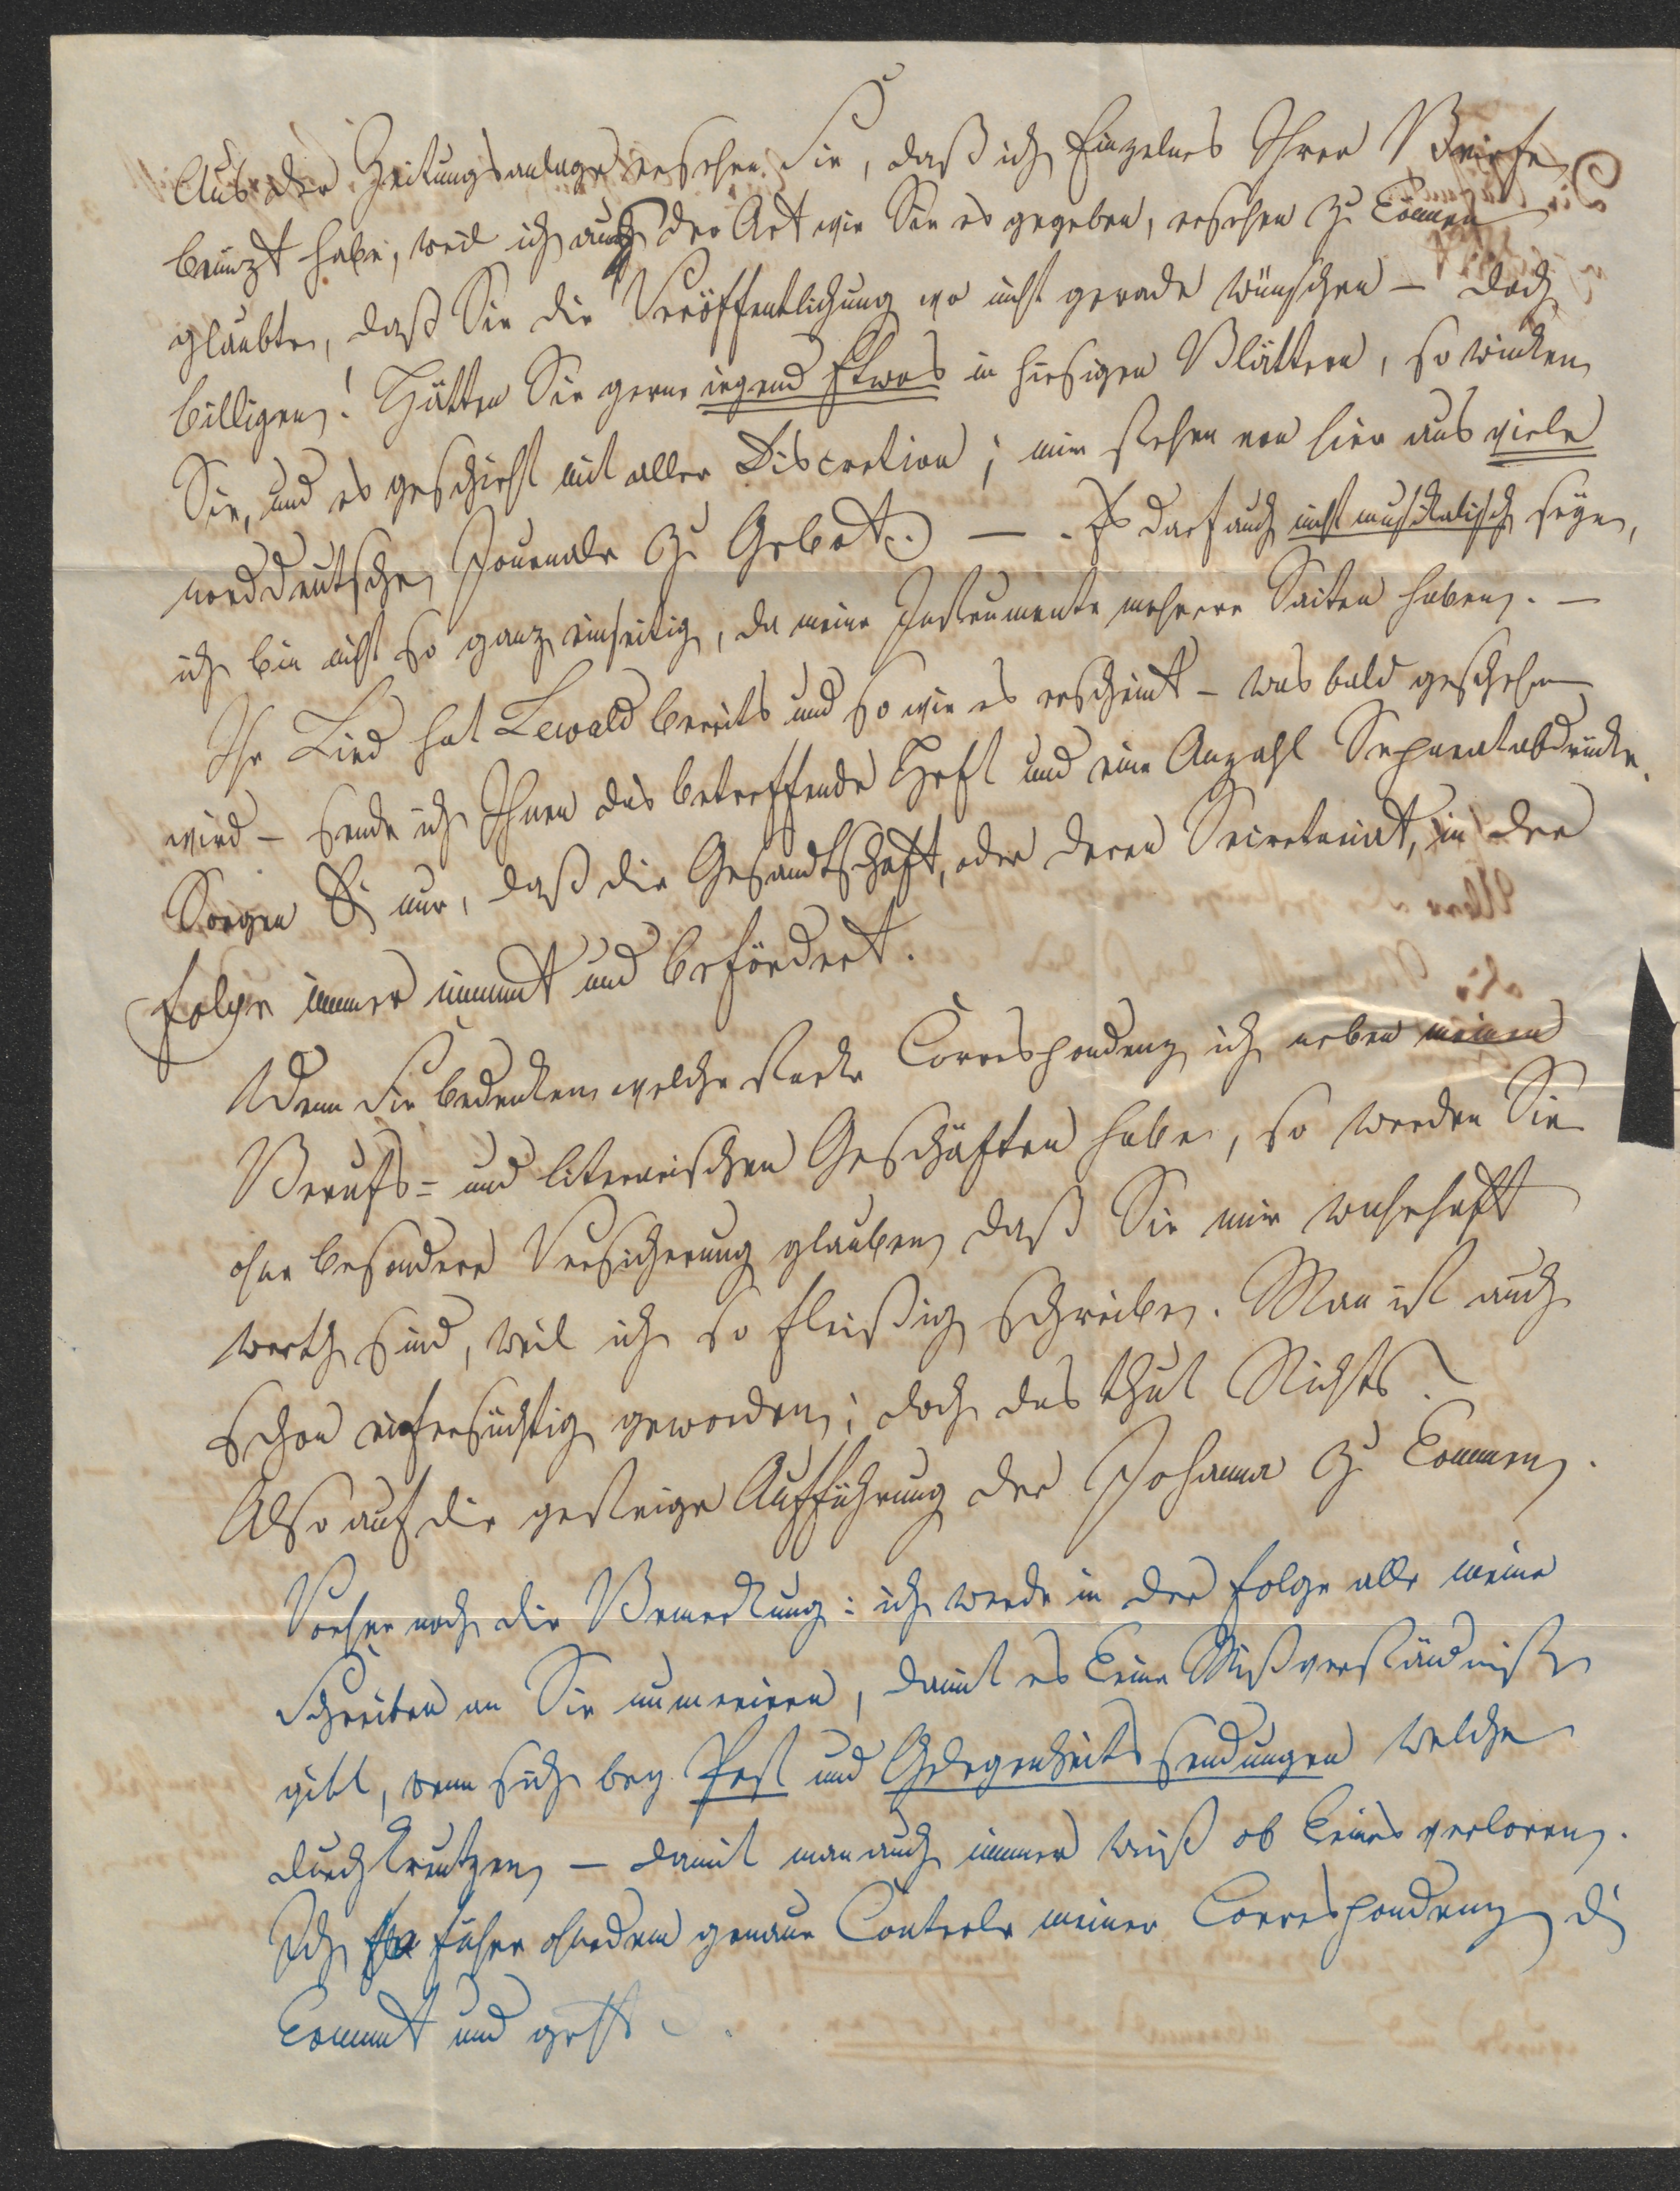 Aus der Zeitungsanlage ersehen Sie, daß ich Einzelnes Ihrer Briefe
benüzt habe, weil ich aus der Art wie Sie es gegeben, ersehen zu können
glaubte, daß Sie die Veröffentlichung wo nicht gerade wünschen – doch
billigen! Hätten Sie gerne irgend Etwas in hiesigen Blättern, so winken
Sie, und es geschieht mit aller Discretion; mir stehen von hier aus viele
norddeutsche Journale zu Gebot. – Es darf auch nicht musikalisch seyn,
ich bin nicht so ganz einseitig, da meine Instrumente mehrere Saiten haben. –
Ihr Lied hat Lewald bereits und so wie es erscheint – was bald geschehen
wird – sende ich Ihnen das betreffende Heft und eine Anzahl Separatabdrücke.
Sorgen Sie nur, daß die Gesandtschaft, oder deren Secretariat, in der
Folge immer nimmt und befördert.
Wenn Sie bedenken welche starke Correspondenz ich neben meinen
Berufs= und literarischen Geschäften habe, so werden Sie
ohne besondere Versicherung glauben, daß Sie mir wahrhaft
werth sind, weil ich so fleißig schreibe. Man ist auch
schon eifersüchtig geworden; doch das thut Nichts!
Also auf die gestrige Aufführung der Johanna zu kommen.
Vorher noch die Bemerkung: ich werde in der Folge alle meine
Schreiben an Sie numeriren, damit es keine Mißverständniße
gibt, wenn sich bey Post und Gelegenheitssendungen welche
durchkreutzen – damit man auch immer weiß ob keines verloren.
Ich führe ohnedem genaue Controle meiner Correspondenz die
kommt und geht.